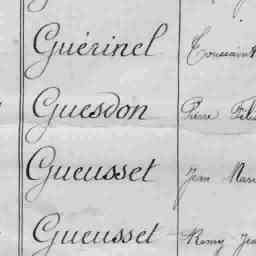 Guérinel Toussaint
Guesdon Pierre
Gueusset Jean
Gueusset Remy